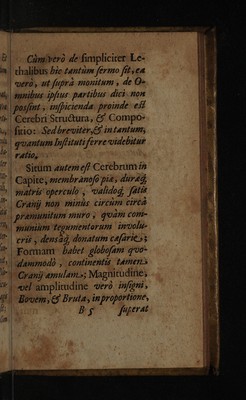 Cùm verò de simpliciter Le-
thalibus hic tantùm sermo sit, ea
verò, ut suprà monitum, de O-
mnibus ipsius partibus dici non
possint, inspicienda proinde est
Cerebri Structura, & Compo-
sitio: Sed breviter, & in tantum,
quantum Instituti ferre videbitur
ratio.
Situm autem est Cerebrum in
Capite, membranoso pia, duraq́;
matris operculo, validoq́; satis
Cranij non minùs circùm circà
præmunitum muro, quàm com-
munium tegumentorum involu-
cris, densáq́; donatum cæsarie;
Formam habet globosam quo-
dammodò, continentis tamen
Cranij æmulam; Magnitudine,
vel amplitudine verò insigni,
Bovem, & Bruta, in proportione,
B 5 superat